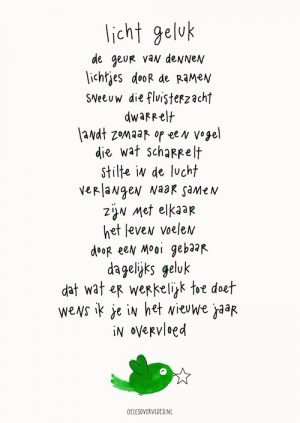 licht geluk
de geur van dennen
lichtjes door de ramen
sneeuw die fluisterzacht
dwarrelt
landt zomaar op een vogel
die wat scharrelt
stilte in de lucht
verlangen naar samen
zijn met elkaar
het leven voelen
door een mooi gebaar
dagelijks geluk
dat wat er werkelijk toe doet
wens ik je in het nieuwe jaar
in overvloed
OELESOVERVLOED.NL